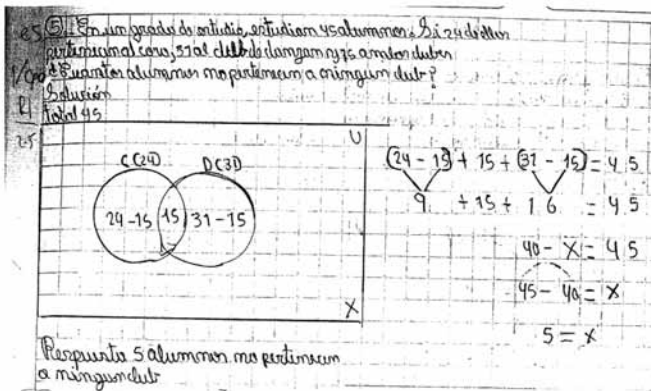 ⑤. En un grado de estudio, estudian 45 alumnos: Si 24 de ellos
pertenecen al coro, 31 al club de danzam y 15 a ambos clubes
¿Cuantos alumnos no pertenecen a ningun club?
Solución
Total 45
U
C(24) D(31)
24-15 15 31-15
X
(24-15)+15+(31-15)=45
9 +15+ 16 =45
40-X=45
45-40=X
5=X
Respuesta 5 alumnos no pertenecen
a ningun club